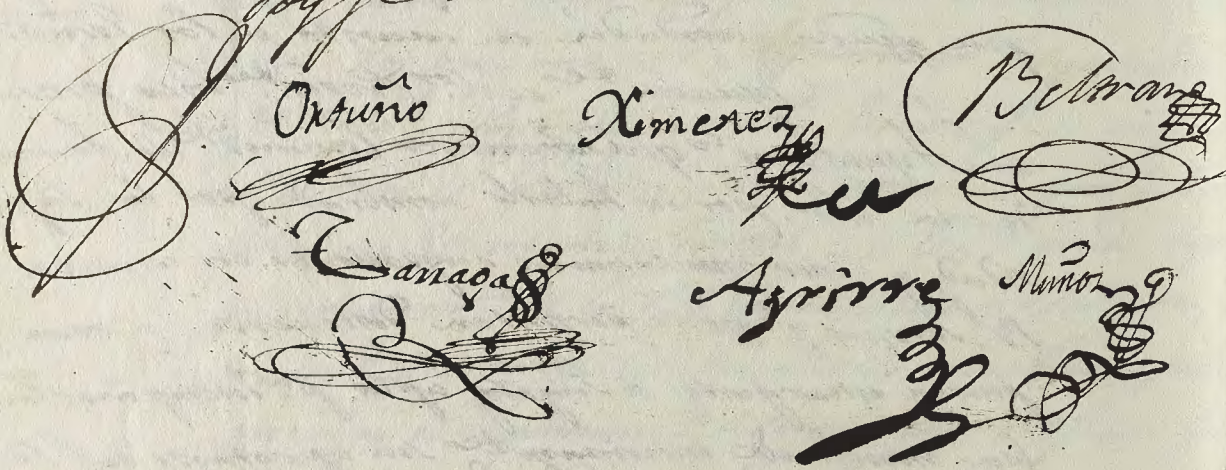 Ortuño Ximenez Beltran
Aguirre Muñoz